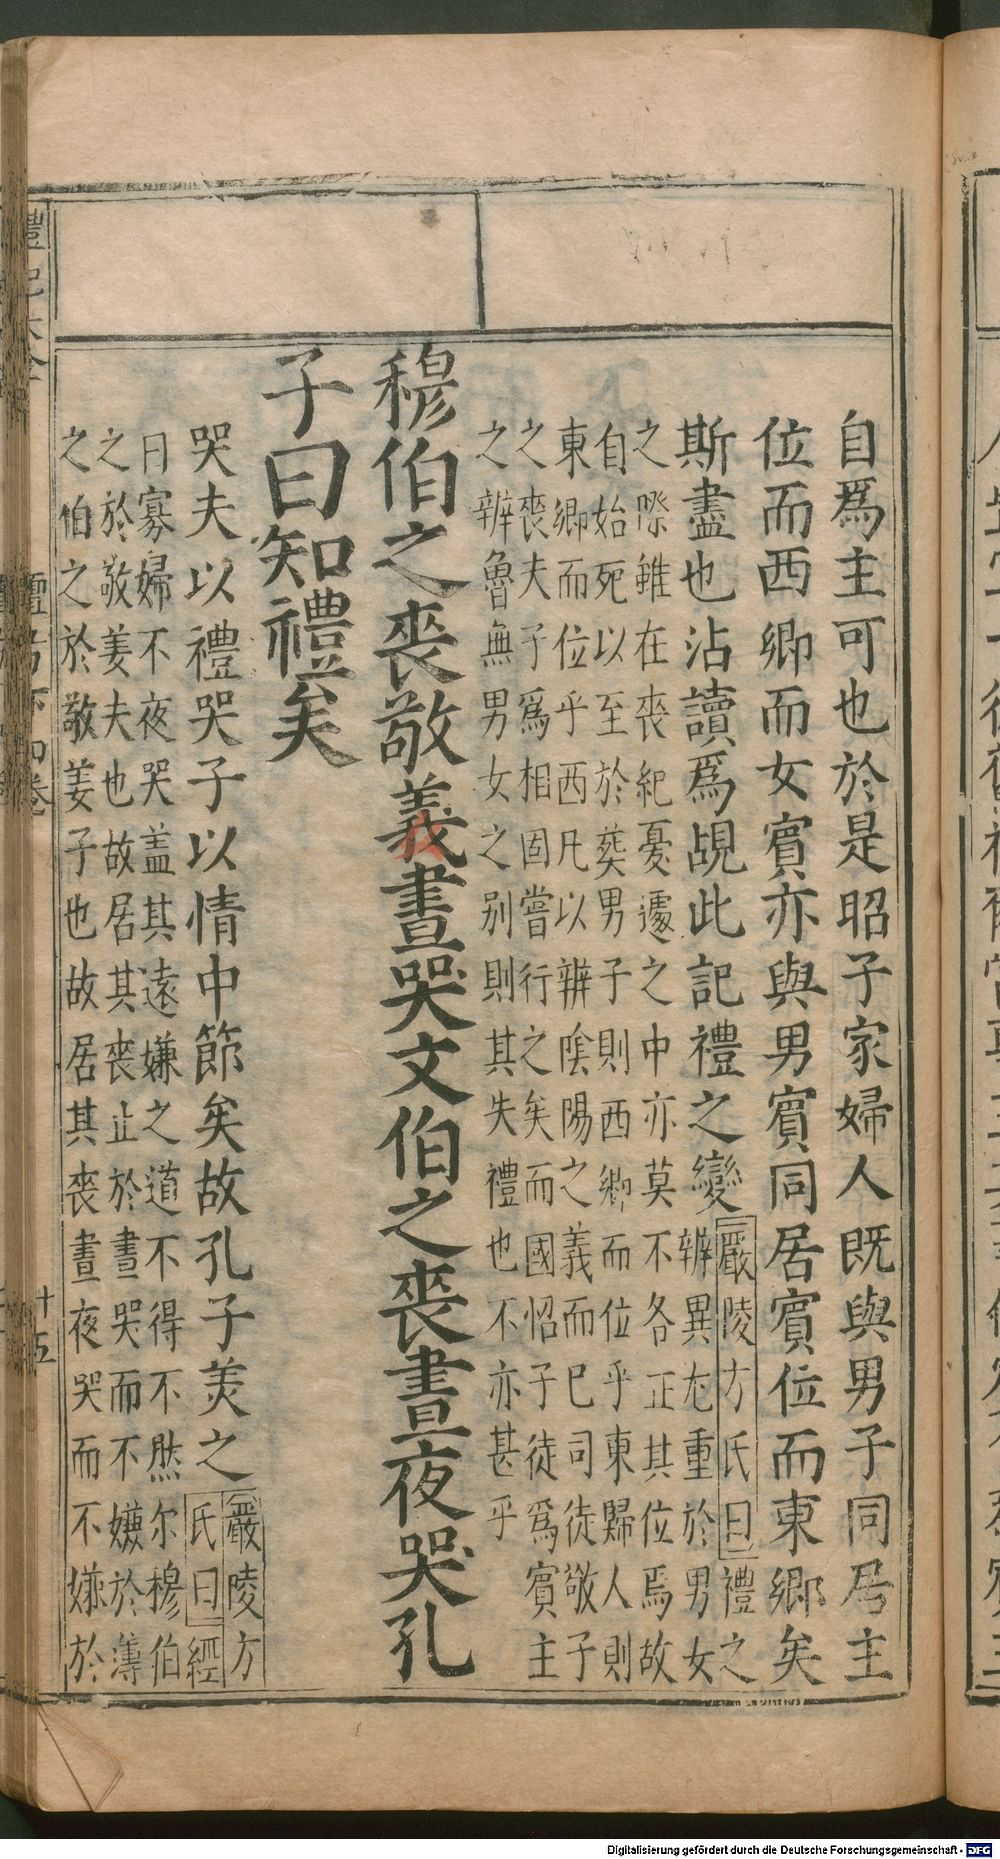 自爲主可也於是昭子家婦人既與男子同居主
位而西鄉而女賓亦與男賓同居賓位而東鄉矣
斯盡也沾讀爲覘此記禮之變
嚴陵方氏曰禮之
辨異尤重於男女
之際雖在喪紀憂遽之中亦莫不各正其位焉故
自始死以至於葬男子則西鄉而位乎東歸人則
東鄉而位乎西凡以辨陰陽之義而巳司徒敬子
之喪夫子爲相固嘗行之矣而國怊子徒爲賓主
之辨魯無男女之别則其失禮也不亦甚乎
穆伯之喪敬義晝哭文伯之喪晝夜哭孔
子曰知禮矣
哭夫以禮哭子以情中節矣故孔子美之
嚴陵方
氏曰經
曰寡婦不夜哭盖其遠嫌之道不得不然尔穆伯
之於敬姜夫也故居其喪止於晝哭而不嫌於薄
之伯之於敬姜子也故居其喪晝夜哭而不嫌於
禮記大全
檀弓下 四卷
十五
Digitalisierung gefördert durch die Deutsche Forschungsgemeinschaft - DFG